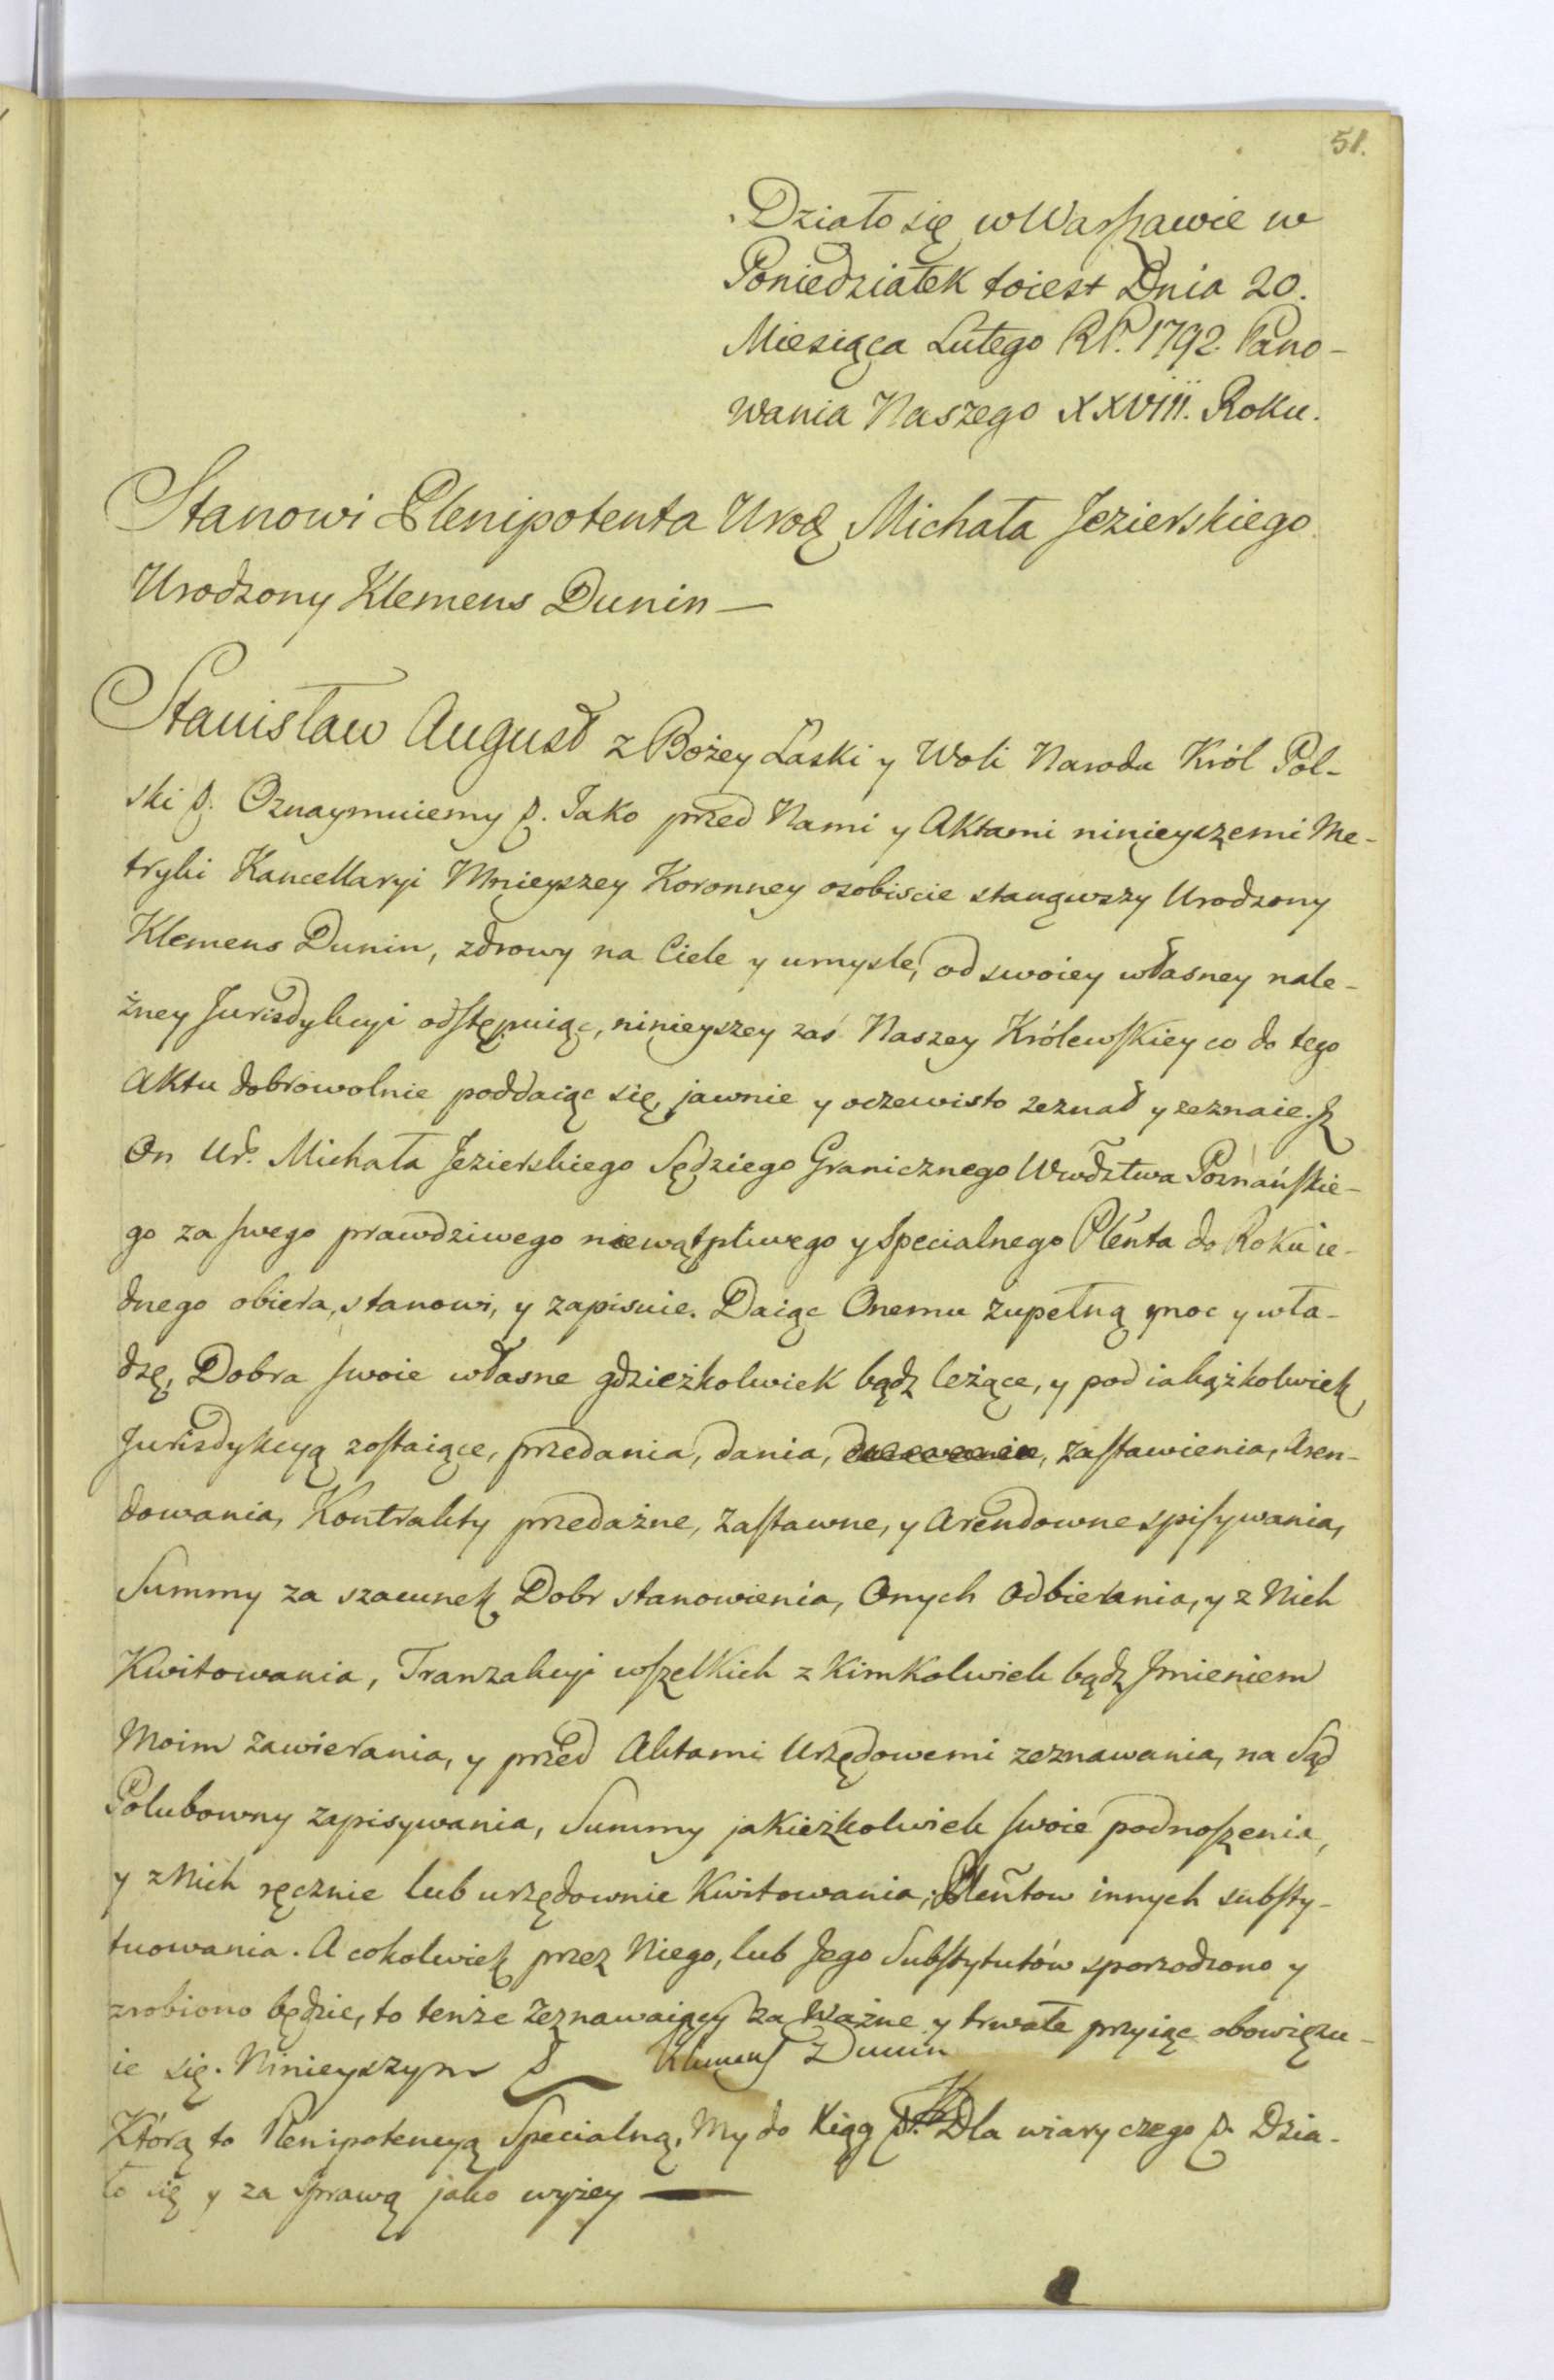 51.
Działo się w Warszawie w
Poniedziałek toiest Dnia 20.
Miesiąca Lutego RP. 1792. Pano-
wania Naszego XXVIII. Roku.
Stanowi Plenipotenta Urodz Michała Jezierskiego
Urodzony Klemens Dunin —
Stanisław August z Bożey Łaski y Woli Narodu Król Pol-
ski &. Oznaymuiemy &. Jako przed Nami y Aktami ninieyszemi Me-
tryki Kancellaryi Mnieyszey Koronney osobiscie stanąwszy Urodzony
Klemens Dunin, zdrowy na Ciele y umysle, od swoiey własney nale-
żney Jurisdykcyi odstępuiąc, ninieyszey zaś Naszey Królewskiey co do tego
Aktu dobrowolnie poddaiąc się, jawnie y oczewisto zeznał y zeznaie. Jz
On Ur. Michała Jezierskiego Sędziego Granicznego Wwdztwa Poznańskie-
go za swego prawdziwego niewątpliwego y specialnego Plenta do Roku ie-
dnego obiera, stanowi, y zapisuie. Daiąc Onemu zupełną moc y wła-
dzę, Dobra swoie własne gdzieżkolwiek bądz leżące, y pod iakążkolwiek
Jurisdykcyą zostaiące, przedania, dania, zastawienia, Aren-
dowania, Kontrakty przedażne, zastawne, y Arendowne spisywania,
Summy za szacunek Dobr stanowienia, Onych odbierania, y z Nich
Kwitowania, Tranzakcyi wszelkich z kimkolwiek bądz Jmieniem
Moim zawierania, y przed Aktami Urzędowemi zeznawania, na Sąd
Polubowny zapisywania, Summy jakieżkolwiek swoie podnoszenia,
y z Nich ręcznie lub urzędownie Kwitowania; Plentow innych substy-
tuowania. A cokolwiek przez Niego, lub Jego Substytutów sporzodzono y
zrobiono będzie, to tenże Zeznawaiący za Ważne y trwałe przyiąc obowiązu-
ie się. Ninieyszym & Klemens Dunin
Którą to Plenipotencyą Specialną, My do Xiąg &. Dla wiary czego &. Dzia-
ło się y za sprawą jako wyżey —